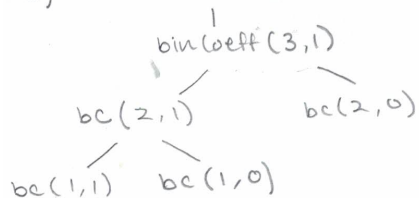 binCoeff(3,1)
bc(2,1) bc(2,0)
bc(1,1) bc(1,0)